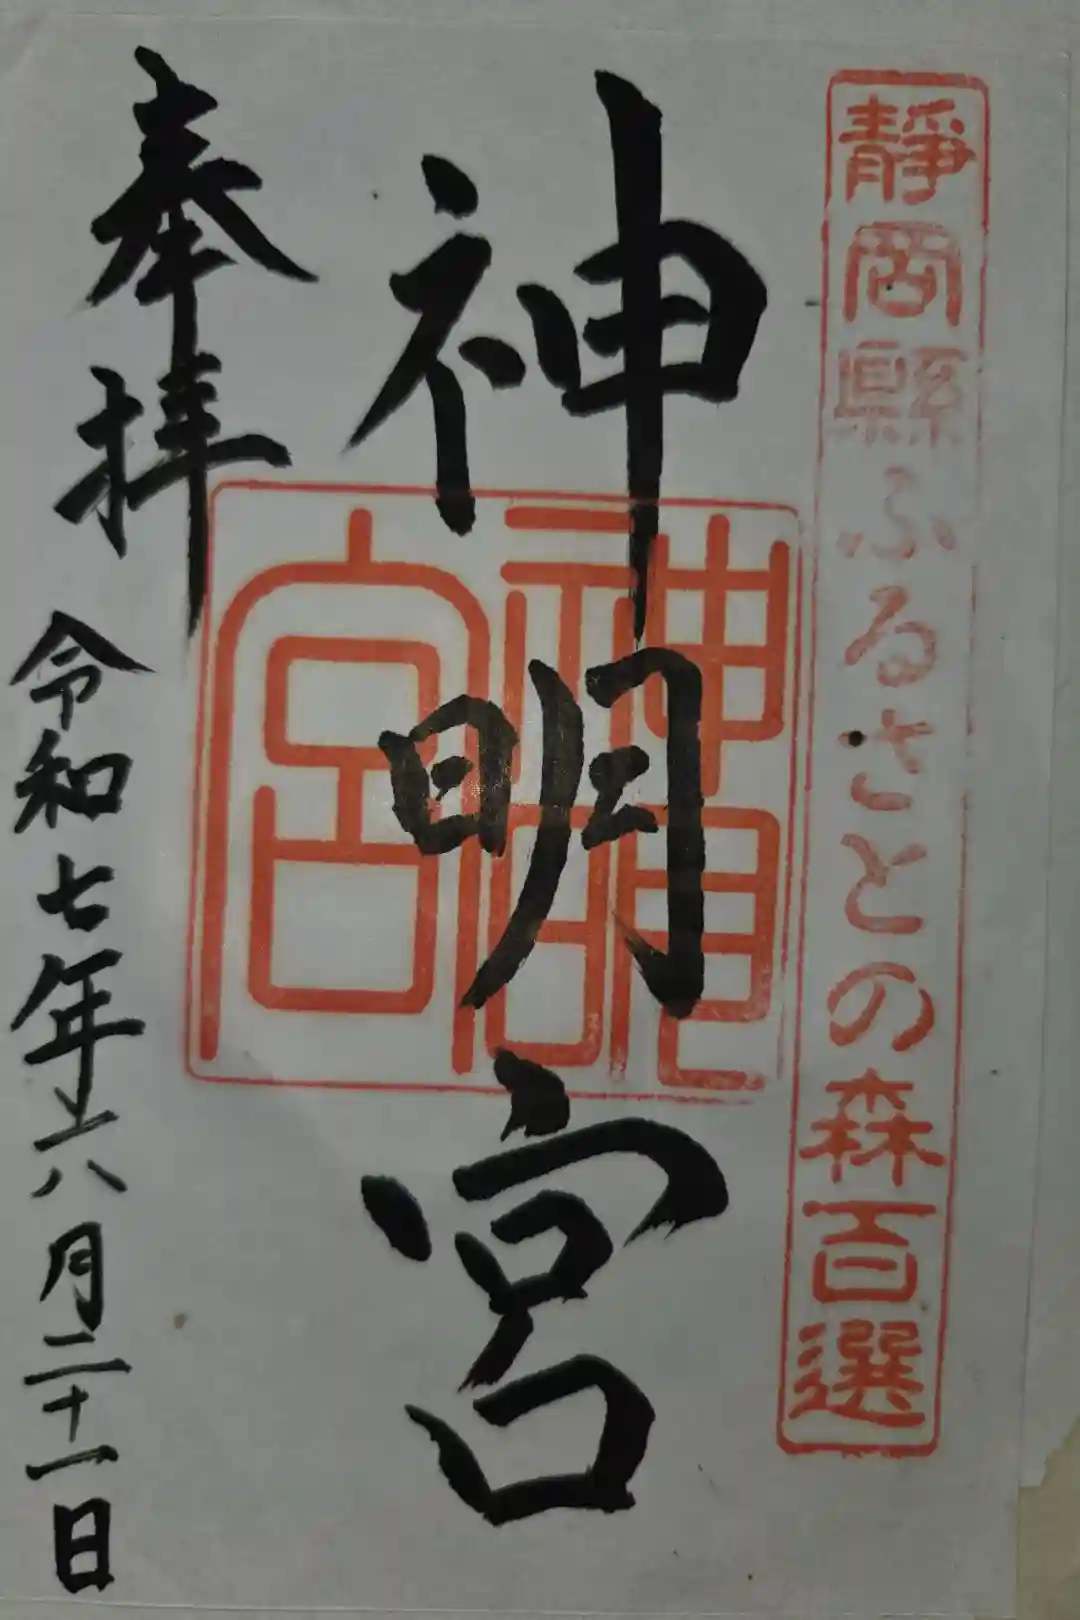 靜岡縣ふるさとの森百選
神明宮
神明宮
奉拝
令和七年六月二十一日